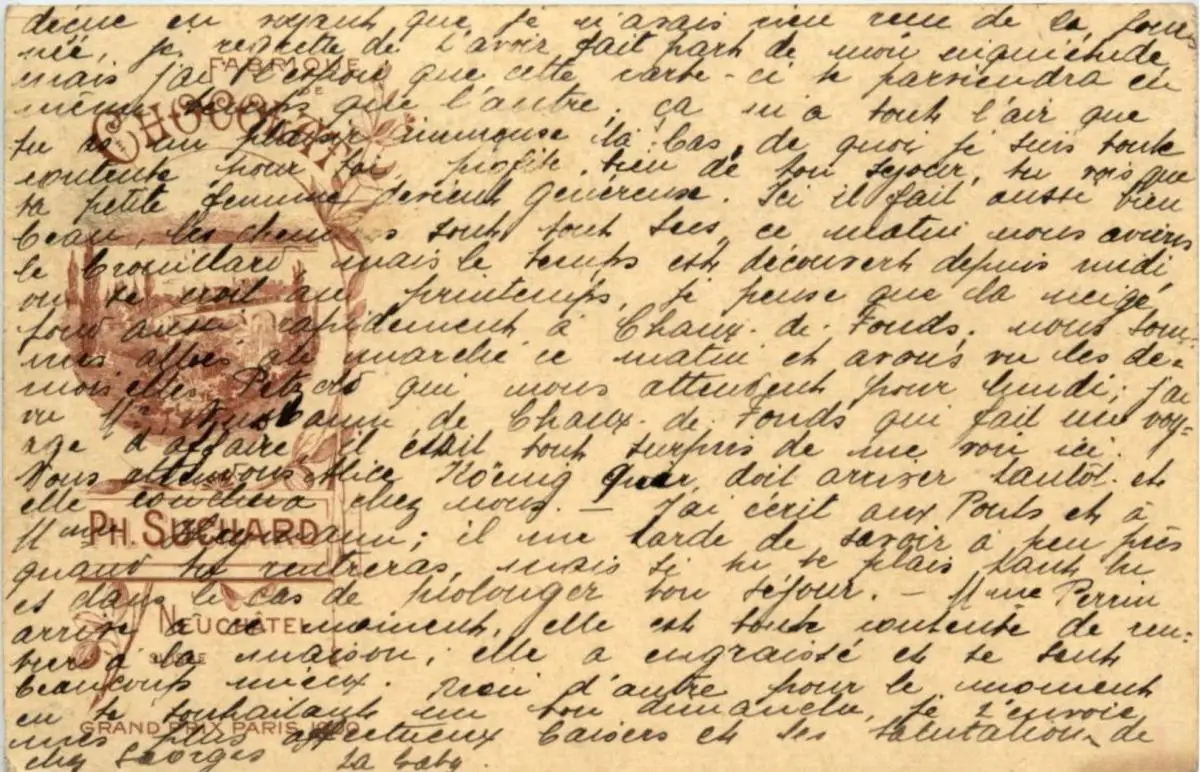 déçue en voyant que je n'avais rien reçu de la jour-
née, je regrette de t'avoir fait part de mon inquiétude
mais j'ai l'espoir que cette carte-ci te parviendra en
même temps que l'autre, ça m'a tout l'air que
tu as un plaisir immense là bas, de quoi je suis toute
contente pour toi, profite bien de ton séjour, tu vois que
ta petite femme devient généreuse. Ici il fait aussi bien
beau, les chemins sont tout secs, ce matin nous avions
le brouillard, mais le temps est découvert depuis midi
on se croit au printemps, je pense que la neige
fond aussi rapidement à Chaux-de-Fonds. nous som-
mes allées au marché ce matin et avons vu les de-
moiselles Petzold qui nous attendent pour lundi; j'ai
vu Mr de Chaux-de-Fonds qui fait un voy-
age d'affaire il était tout surpris de me voir ici.
Nous attendons Alice Köenig qui doit arriver tantôt et
elle couchera chez nous. — J'ai écrit aux Ponts et à
Mme ; il me tarde de savoir à peu près
quand tu rentreras, mais si tu te plais tant tu
es dans le cas de prolonger ton séjour. — Mme Perrin
arrive à ce moment, elle est toute contente de ren-
trer à la maison, elle a engraissé et se sent
beaucoup mieux. Rien d'autre pour le moment
en te souhaitant un bon dimanche, je t'envoie
mes plus affectueux baisers et les salutations de
chez Georges ta Gaby.
FABRIQUE
DE
CHOCOLAT
PH. SUCHARD
NEUCHÂTEL
SUISSE
GRAND PRIX PARIS 1900